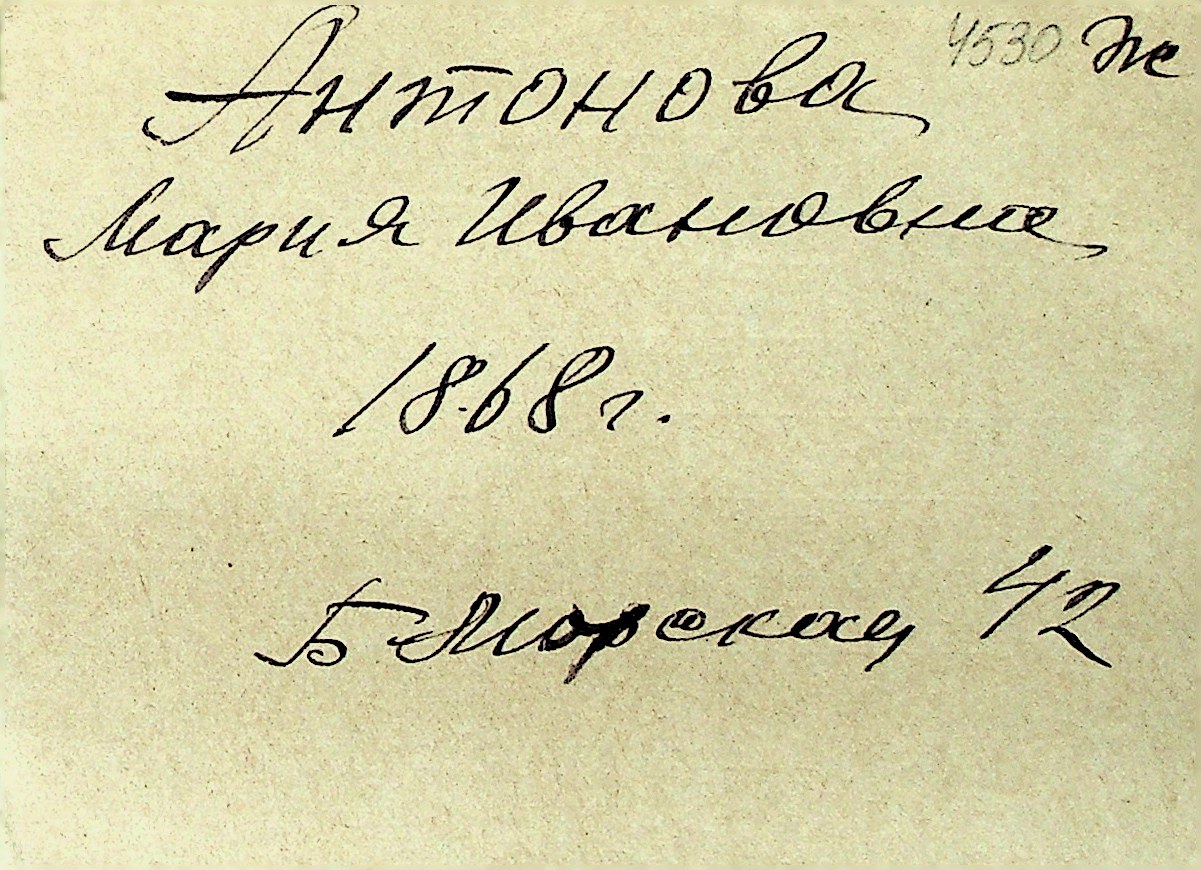 4530 Ж
Антонова
Мария Ивановна
1868 г.
Б-Морская 42